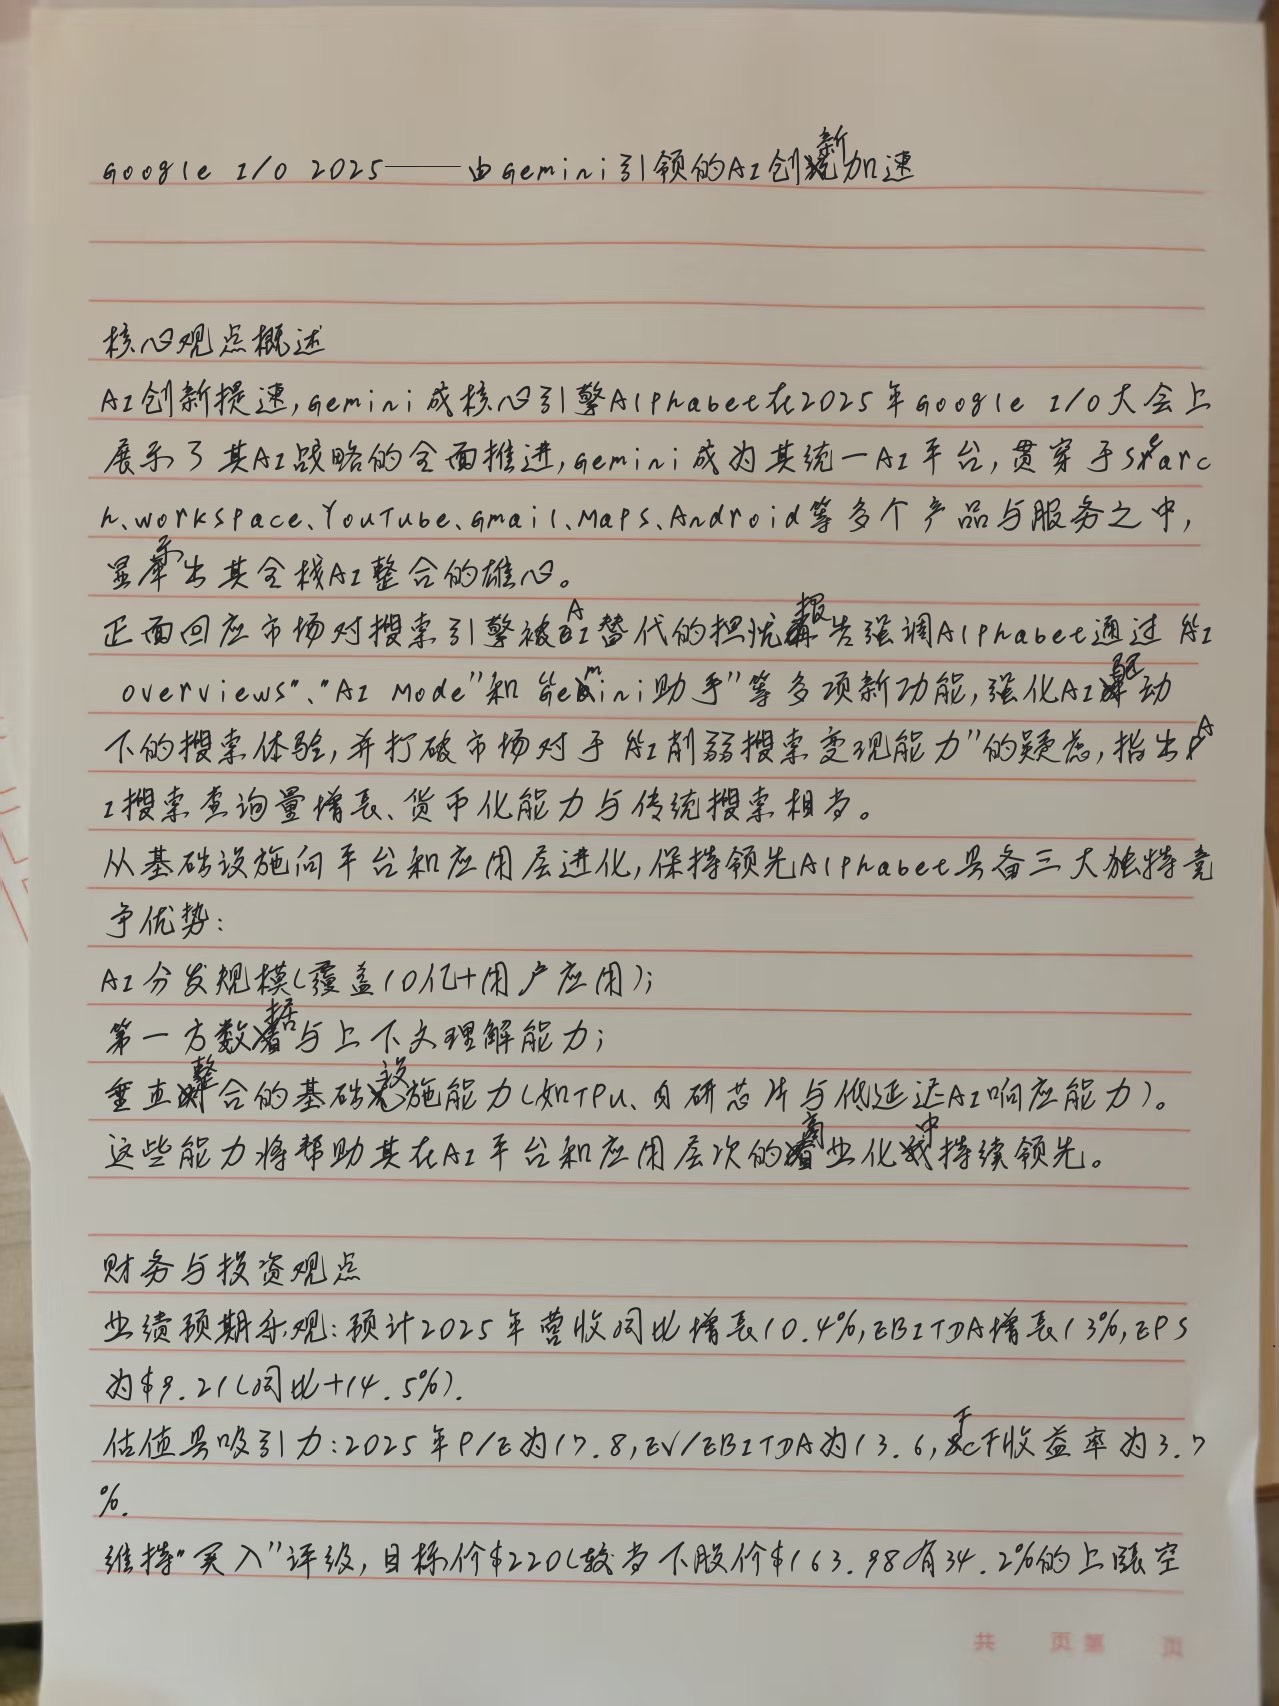 Google I/O 2025——由Gemini引领的AI创新加速
核心观点概述
AI创新提速,Gemini成核心引擎Alphabet在2025年Google I/O大会上
展示了其AI战略的全面推进,Gemini成为其统一AI平台,贯穿于Searc
h、Workspace、YouTube、Gmail、Maps、Android等多个产品与服务之中,
显示出其全栈AI整合的雄心。
正面回应市场对搜索引擎被AI替代的担忧报告强调Alphabet通过"AI
overviews"、"AI Mode"和"Gemini助手"等多项新功能,强化AI驱动
下的搜索体验,并打破市场对于"AI削弱搜索变现能力"的疑虑,指出A
I搜索查询量增长、货币化能力与传统搜索相当。
从基础设施向平台和应用层进化,保持领先Alphabet具备三大独特竞
争优势:
AI分发规模(覆盖10亿+用户应用);
第一方数据与上下文理解能力;
垂直整合的基础设施能力(如TPU、自研芯片与低延迟AI响应能力)。
这些能力将帮助其在AI平台和应用层次的商业化中持续领先。
财务与投资观点
业绩预期乐观:预计2025年营收同比增长10.4%,EBITDA增长13%,EPS
为$9.21(同比+14.5%).
估值具吸引力:2025年P/E为17.8,EV/EBITDA为13.6,FCF收益率为3.7
%.
维持"买入"评级,目标价$220(较当下股价$163.98有34.2%的上涨空
共 页 第 页